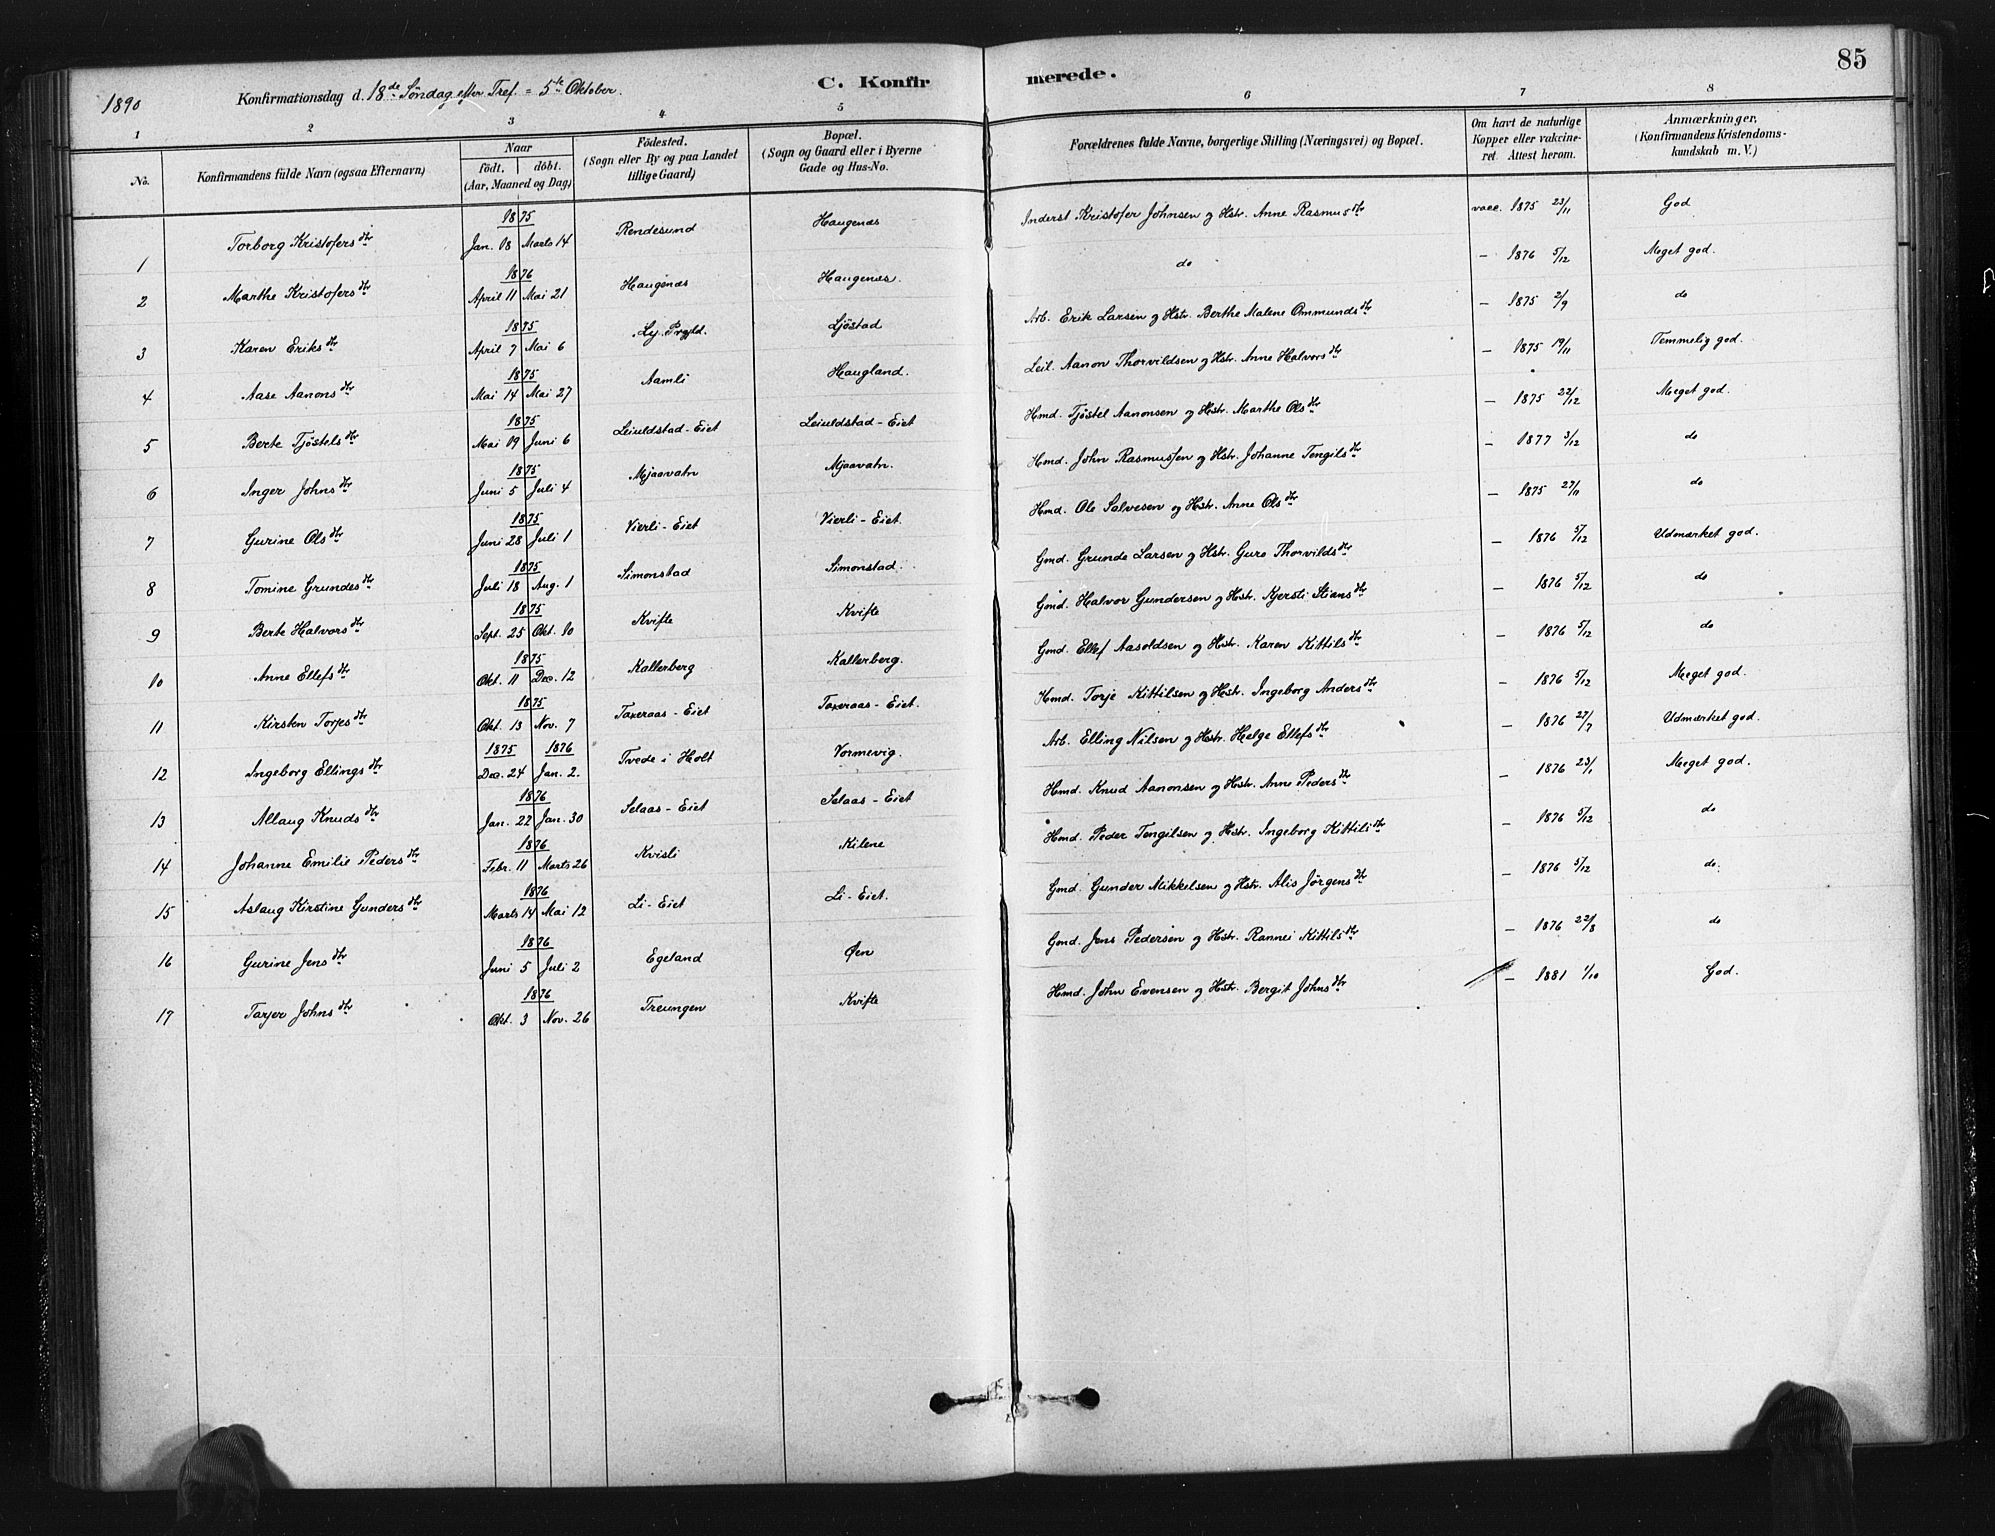 85
1890 Konfirmationsdag d. 18de Søndag efter Tref. = 5te Oktober. C. Konfirmerede.
1 2 3 4 5 6 7 8
No. Konfirmandens fulde Navn (ogsaa Efternavn) Naar født. døbt. (Aar, Maaned og Dag) Födested. (Sogn eller By og paa Landet tillige Gaard) Bopæl. (Sogn og Gaard eller i Byerne Gade og Hus-No. Forældrenes fulde Navne, borgerlige Stilling (Næringsvei) og Bopæl. Om havt de naturlige Kopper eller vakcineret. Attest herom. Anmærkninger. (Konfirmandens Kristendomskundskab m. V.)
1 Torborg Kristofersdtr 1875 Jan. 18 Marts 14 Rendesund Haugenæs Inderst Kristofer Johnsen og Hstr. Anne Rasmusdtr vacc. 1875 23/11 God
2 Marthe Kristofersdtr 1876 April 11 Mai 21 Haugenæs Haugenæs. do – 1876 5/12 Meget god.
3 Karen Eriksdtr 1875 April 7 Mai 6 Ly. Prgjld. Ljöstad Arb. Erik Larsen og Hstr. Berthe Malene Ommundsdtr – 1875 2/9 do
4 Aase Aanonsdtr 1875 Mai 14 Mai 27 Aamli Haugland. Leil. Aanon Thorvildsen og Hstr. Anne Halvorsdtr – 1875 19/11 Temmelig god.
5 Berte Tjöstelsdtr 1875 Mai 19 Juni 6 Leiuldstad-Eiet Leiuldstad-Eiet Hmd. Tjöstel Aanonsen og Hstr. Marthe Olsdtr – 1875 22/12 Meget god.
6 Inger Johnsdtr 1875 Juni 5 Juli 4 Mjaavatn Mjaavatn. Hmd. John Rasmussen og Hstr. Johanne Tengilsdtr – 1877 3/12 do
7 Gurine Olsdtr 1875 Juni 28 Juli 1 Vierli-Eiet Vierli-Eiet. Hmd. Ole Salvesen og Hstr. Anne Olsdtr – 1875 27/11 do
8 Tomine Grundesdtr 1875 Juli 18 Aug. 1 Simonstad Simonstad Gmd. Grunde Larsen og Hstr. Guro Thorvildsdtr – 1876 5/12 Udmærket god.
9 Berte Halvorsdtr 1875 Sept. 25 Okt. 10 Kvifte Kvifte Gmd. Halvor Gundersen og Hstr. Kjersti Stiansdtr – 1876 5/12 do
10 Anne Ellefsdtr 1875 Okt. 11 Dec. 12 Kallerberg Kallerberg. Gmd. Ellef Aasoldsen og Hstr. Karen Kittilsdtr – 1876 5/12 do
11 Kirsten Torjesdtr 1875 Okt. 13 Nov. 7 Taxeraas-Eiet Taxeraas-Eiet. Hmd. Torje Kittilsen og Hstr. Ingeborg Andersdtr – 1876 5/12 Meget god.
12 Ingeborg Ellingsdtr 1875 1876 Dec. 24 Jan. 2. Tvede i Holt Vormevig. Arb. Elling Nilsen og Hstr. Helge Ellefsdtr – 1876 27/7 Udmærket god.
13 Allaug Knudsdtr 1876 Jan. 22 Jan. 30 Selaas-Eiet Selaas-Eiet Hmd. Knud Aanonsen og Hstr. Anne Pedersdtr – 1876 23/1 Meget god.
14 Johanne Emilie Pedersdtr 1876 Febr. 11 Marts 26 Kvisli Kilene Hmd. Peder Tengilsen og Hstr. Ingeborg Kittilsdtr – 1876 5/12 do
15 Aslaug Kirstine Gundersdtr 1876 Marts 14 Mai 12 Li-Eiet Li-Eiet. Gmd. Gunder Mikkelsen og Hstr. Alis Jörgensdtr – 1876 5/12 do.
16 Gurine Jensdtr 1876 Juni 5 Juli 2 Egeland Øen Gmd. Jens Pedersen og Hstr. Rannei Kittilsdtr – 1876 22/8 do
17 Tarjer Johnsdtr 1876 Okt. 3 Nov. 26 Treungen Kvifte Hmd. John Evensen og Hstr. Bergit Johnsdtr – 1881 1/10 God.